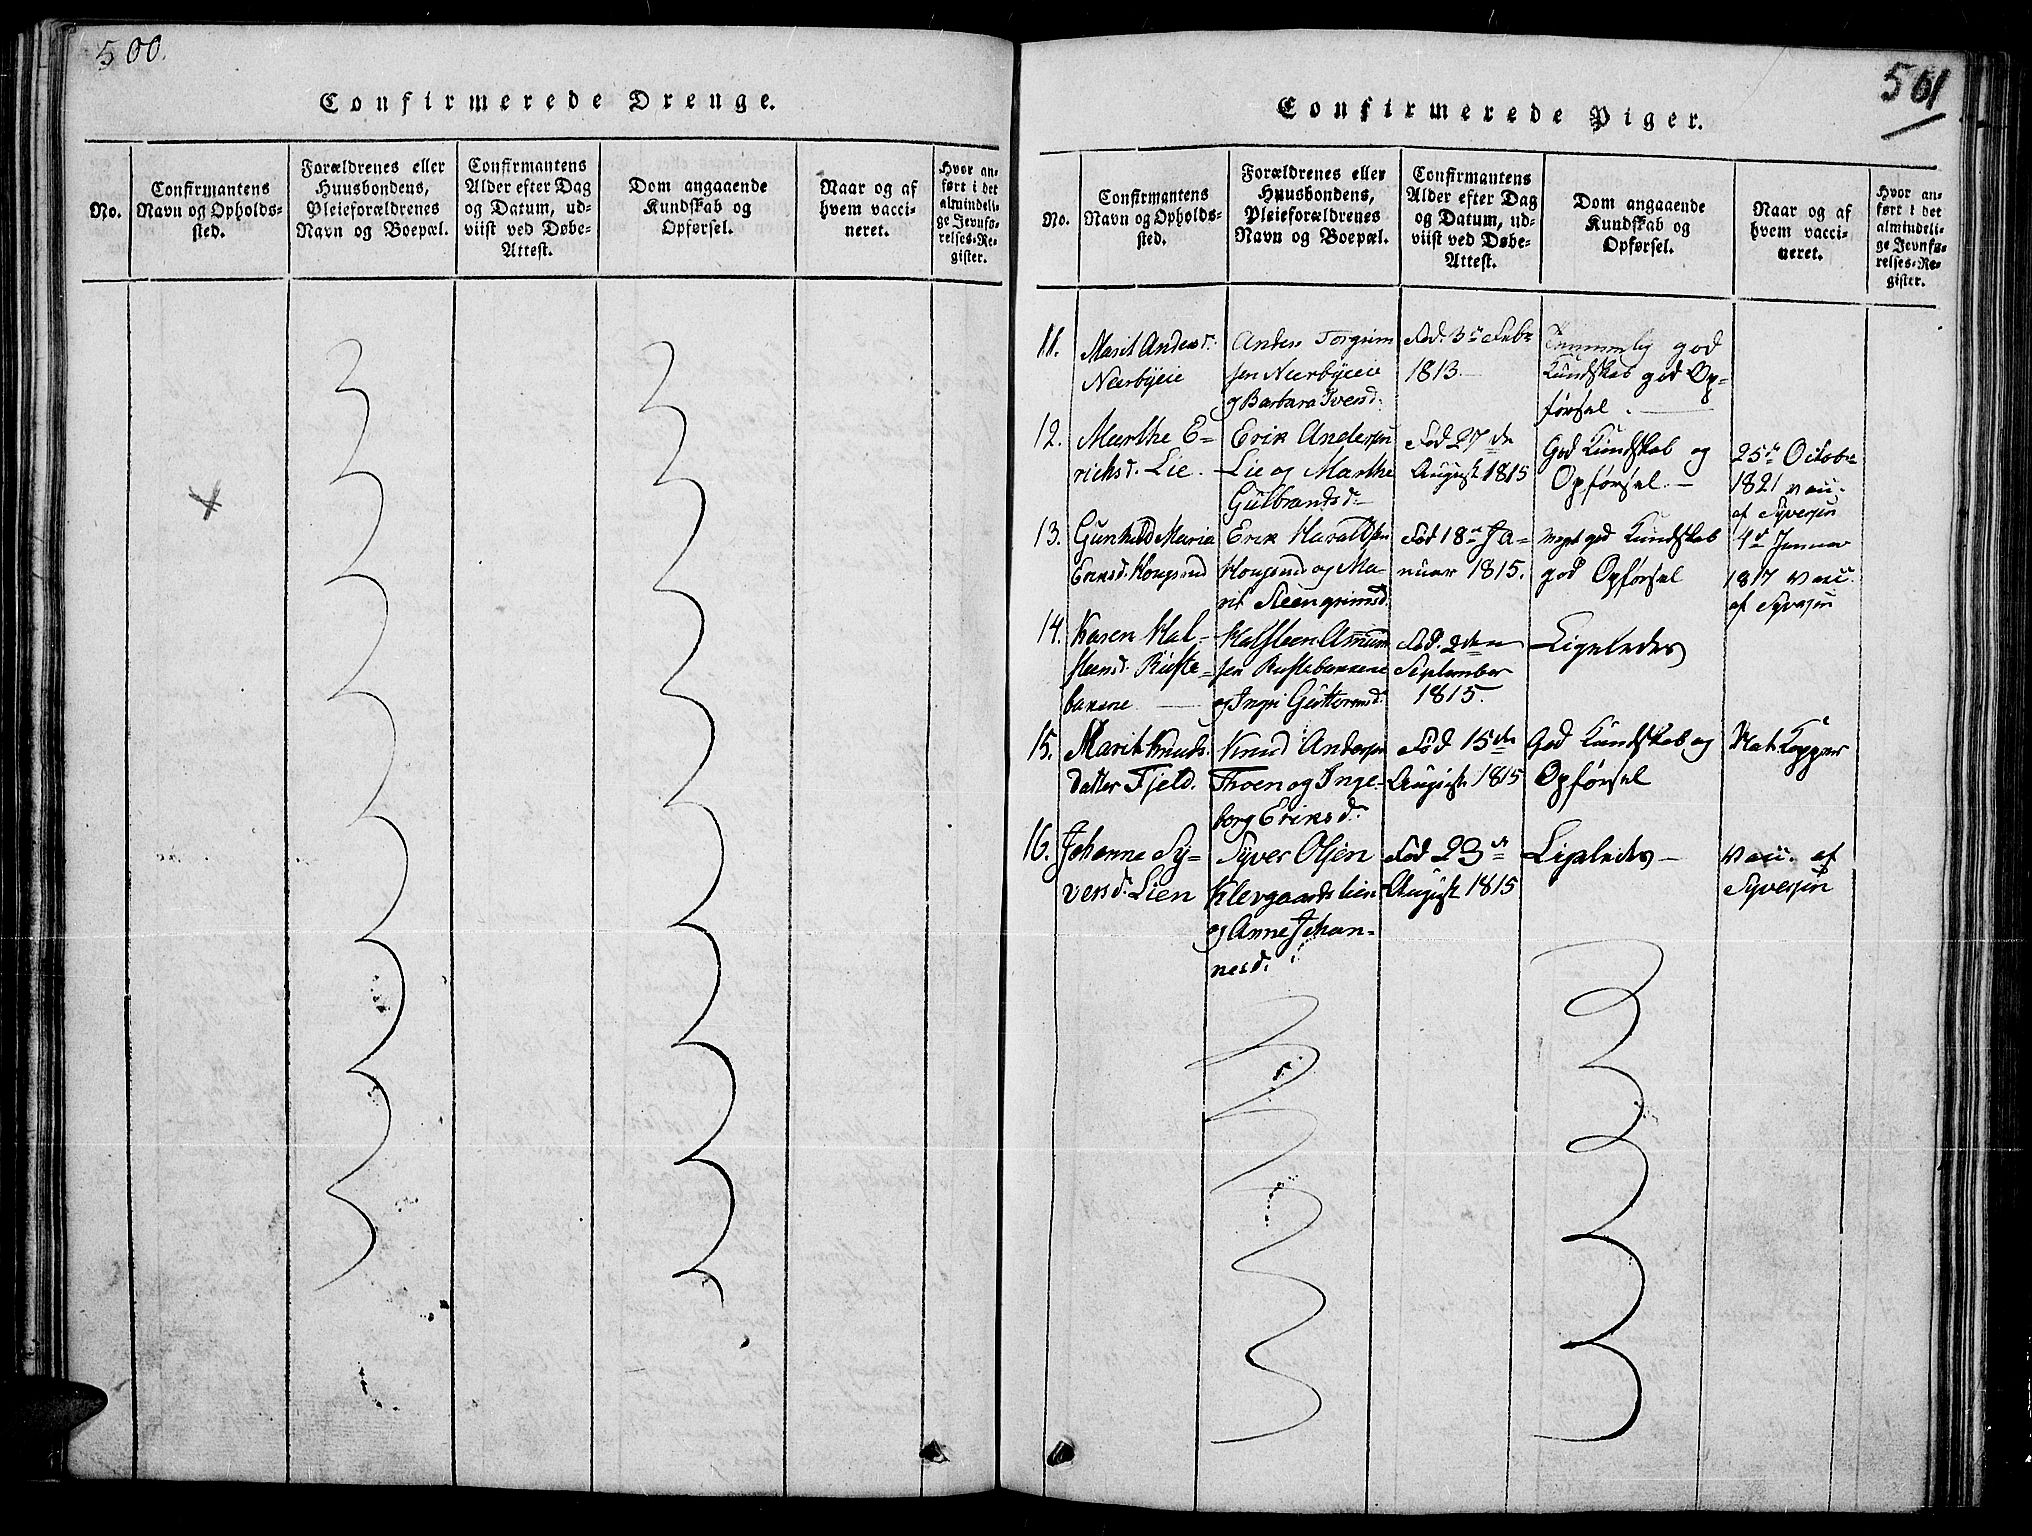 500.
Confirmerede Drenge.
No.
Confirmantens
Navn og Opholds-
sted.
Forældrenes eller
Huusbondens,
Pleieforældrenes
Navn og Boepæl.
Confirmantens
Alder efter Dag
og Datum, ud-
viist ved Døbe-
Attest.
Dom angaaende
Kundskab og
Opførsel.
Naar og af
hvem vacci-
neret.
Hvor an-
ført i det
almindeli-
ge Jevnfø-
relses-Re-
gister.
501
Confirmerede Piger.
No.
Confirmantens
Navn og Opholds-
sted.
Forældrenes eller
Huusbondens,
Pleieforældrenes
Navn og Boepæl.
Confirmantens
Alder efter Dag
og Datum, ud-
viist ved Døbe-
Attest.
Dom angaaende
Kundskab og
Opførsel.
Naar og af
hvem vacci-
neret.
Hvor an-
ført i det
almindeli-
ge Jevnfø-
relses-Re-
gister.
11.
Marit Andersd.
Neerbyeie
Anders Torgrim
sen Neerbyeeie
og Barbara Iversd.
Fød. 3de Febr
1813.
Temmelig god
Kundskab god Op-
førsel.
12.
Marthe E-
richsd. Lie.
Erik Andersen
Lie og Marthe
Gulbrandsd.
Fød 27de
August 1815
God Kundskab og
Opførsel. -
25de Octobr
1821 vacc.
af Syversen
13.
Gunhild Maria
Eriksd. Kongsrud
Erik Haraldsen
Kongsrud og Ma-
rit Steengrimsd.
Fød 18de Ja-
nuar 1815.
Meget god Kundskab
god Opførsel
4de Januar
1817 vacc.
af Syversen
14.
Karen Hal-
steensd. Ruste-
bakene
Halsteen Amun
sen Rustebakkene
og Ingri Guttormsd.
Fød. 2den
September
1815.
Ligeledes
15.
Marit Knuds-
datter Fjeld.
Knud Andersen
Thoen og Inge-
borg Eriksd.
Fød 15de
August 1815
God Kundskab og
Opførsel
Hat Kopper
16.
Johanne Sy-
versd. Lien
Syver Olsen
Klevgaardslien
og Anne Johan-
nesd.
Fød 23de
August 1815
Ligeledes -
vacc. af
Syversen